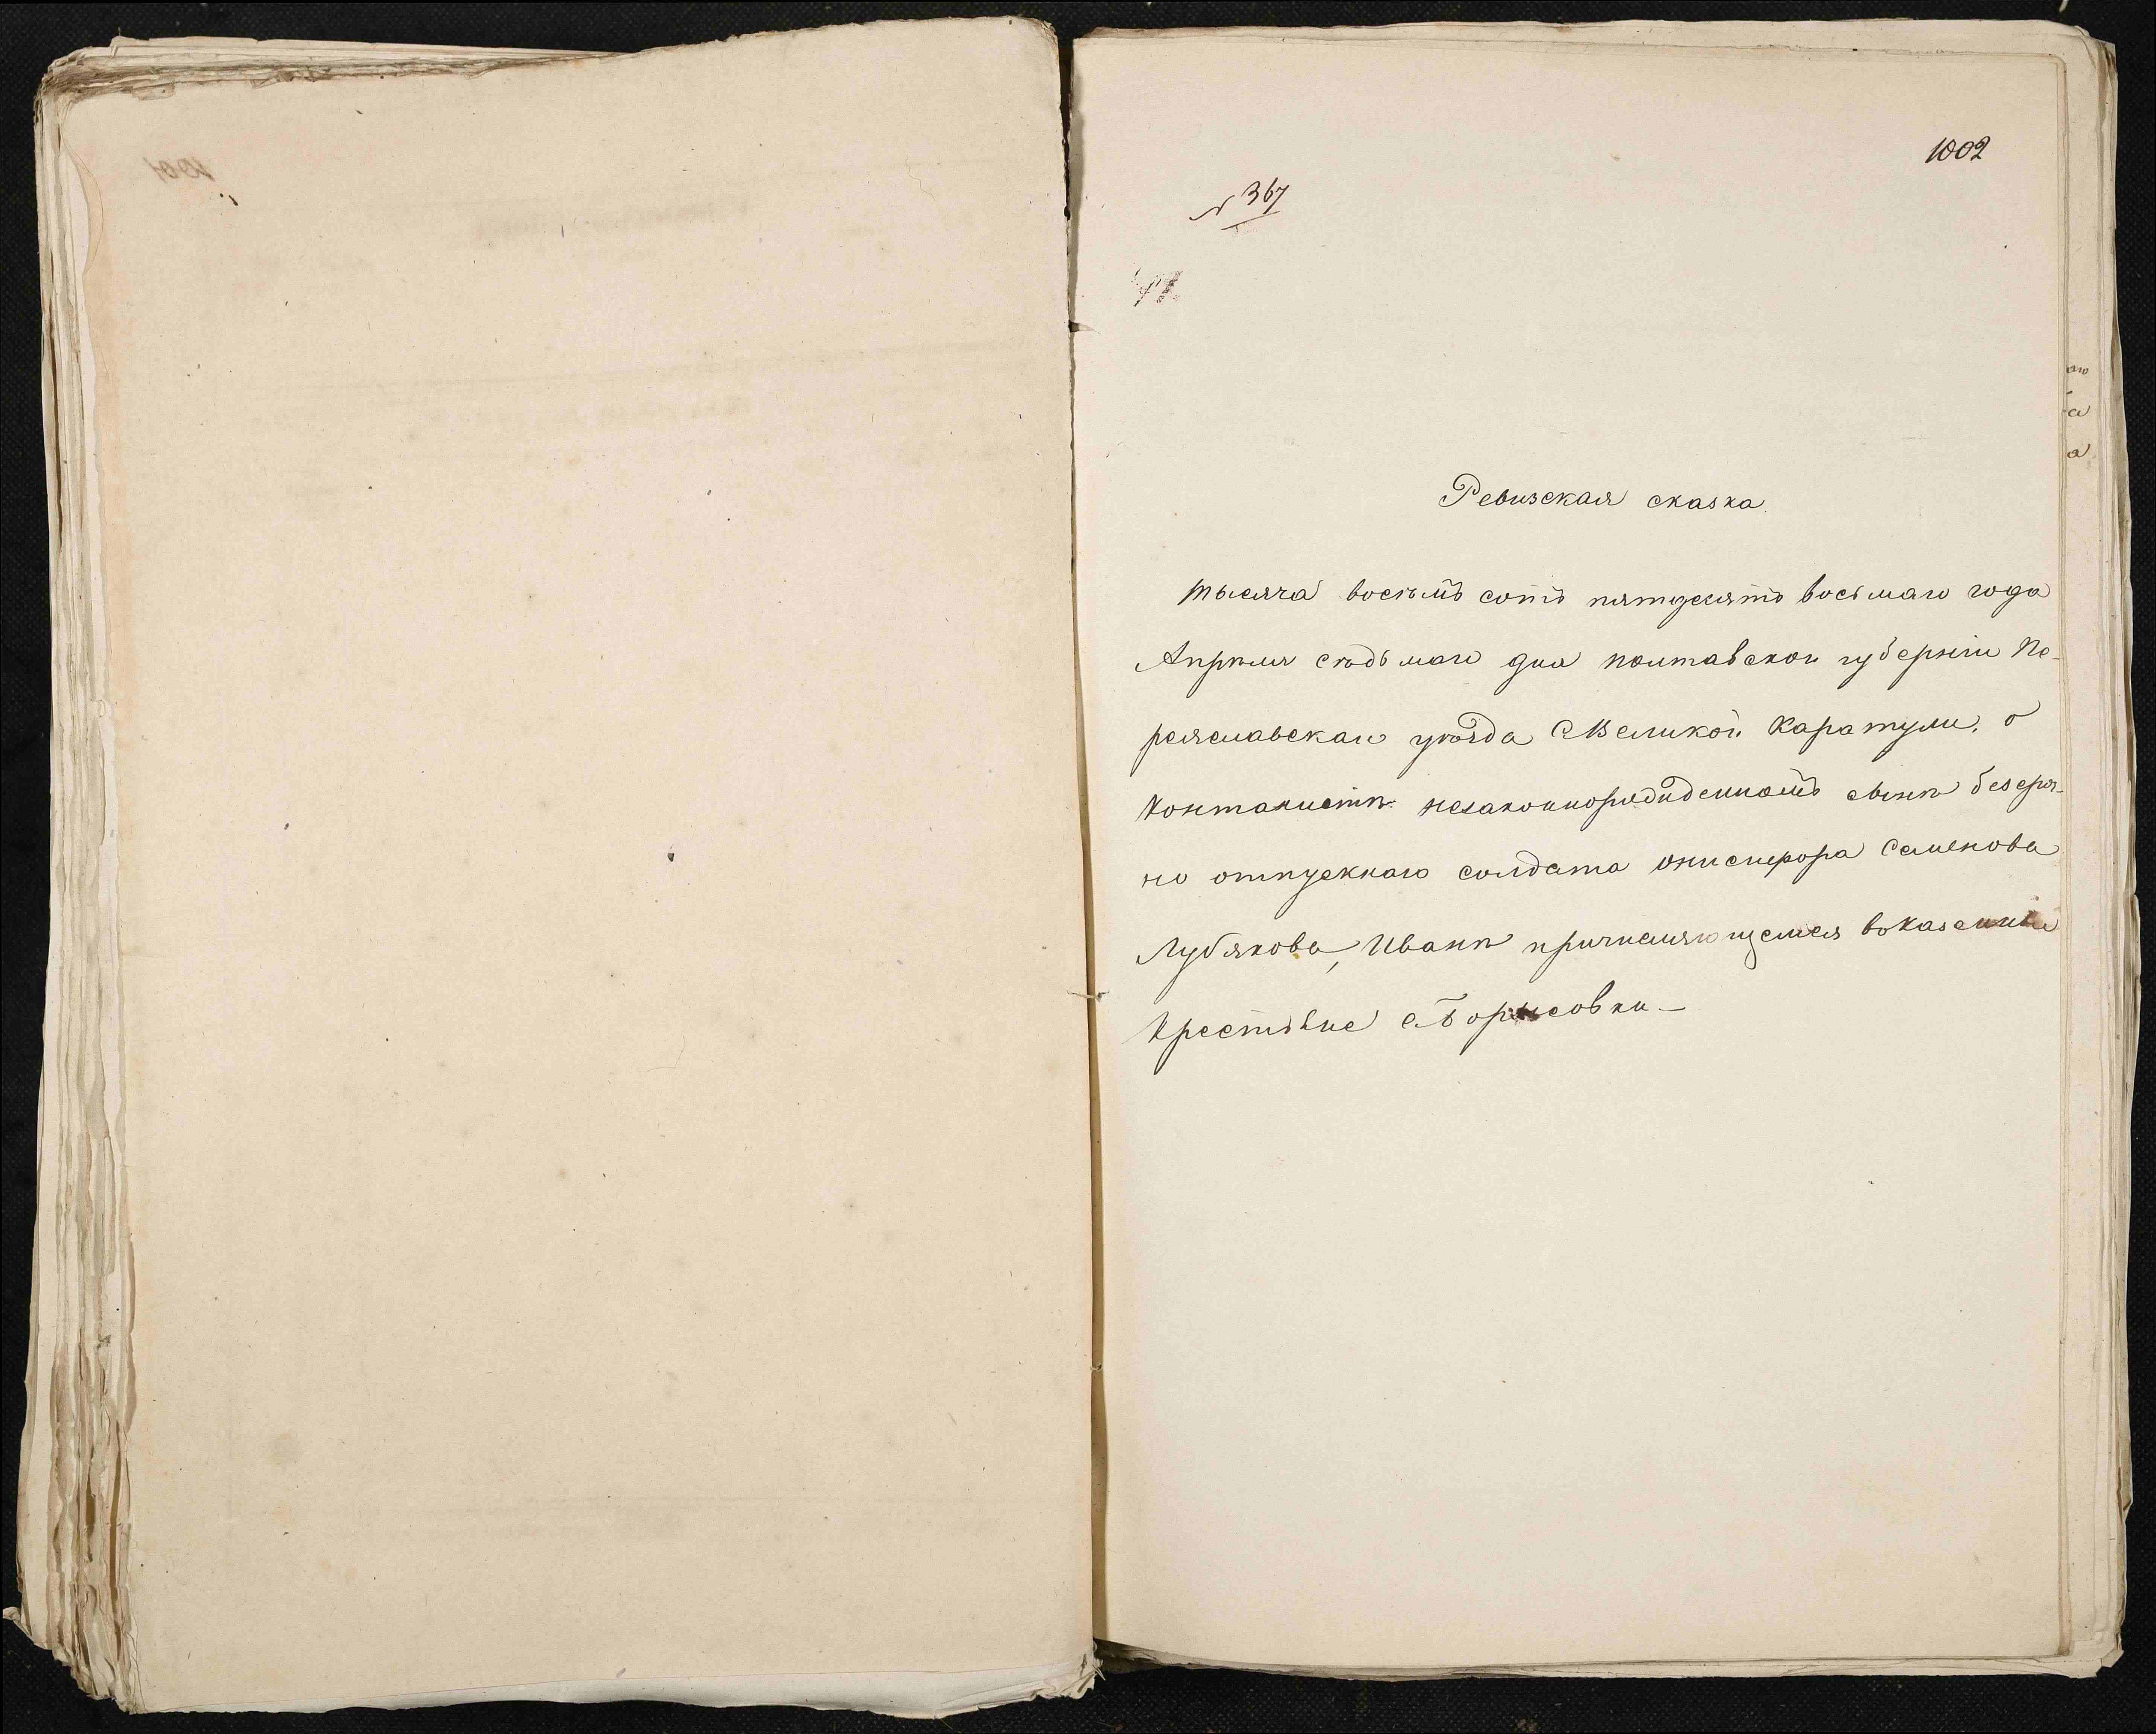 1002
№ 367
Ревизская сказка
тысяча восѣмъ сотъ пятдесятъ восьмаго года
Апрѣля сѣдьмаго дня полтавской губерніи Пе-
реяславскаго уѣзда С Великой Каратули. о
Контонистѣ незаконнорожденномъ сынѣ безсро-
но отпускнаго солдата Онисифора Семенова
Лубякова, Иванѣ причисляющемся вказенние
крестьяне с. Борисовки –